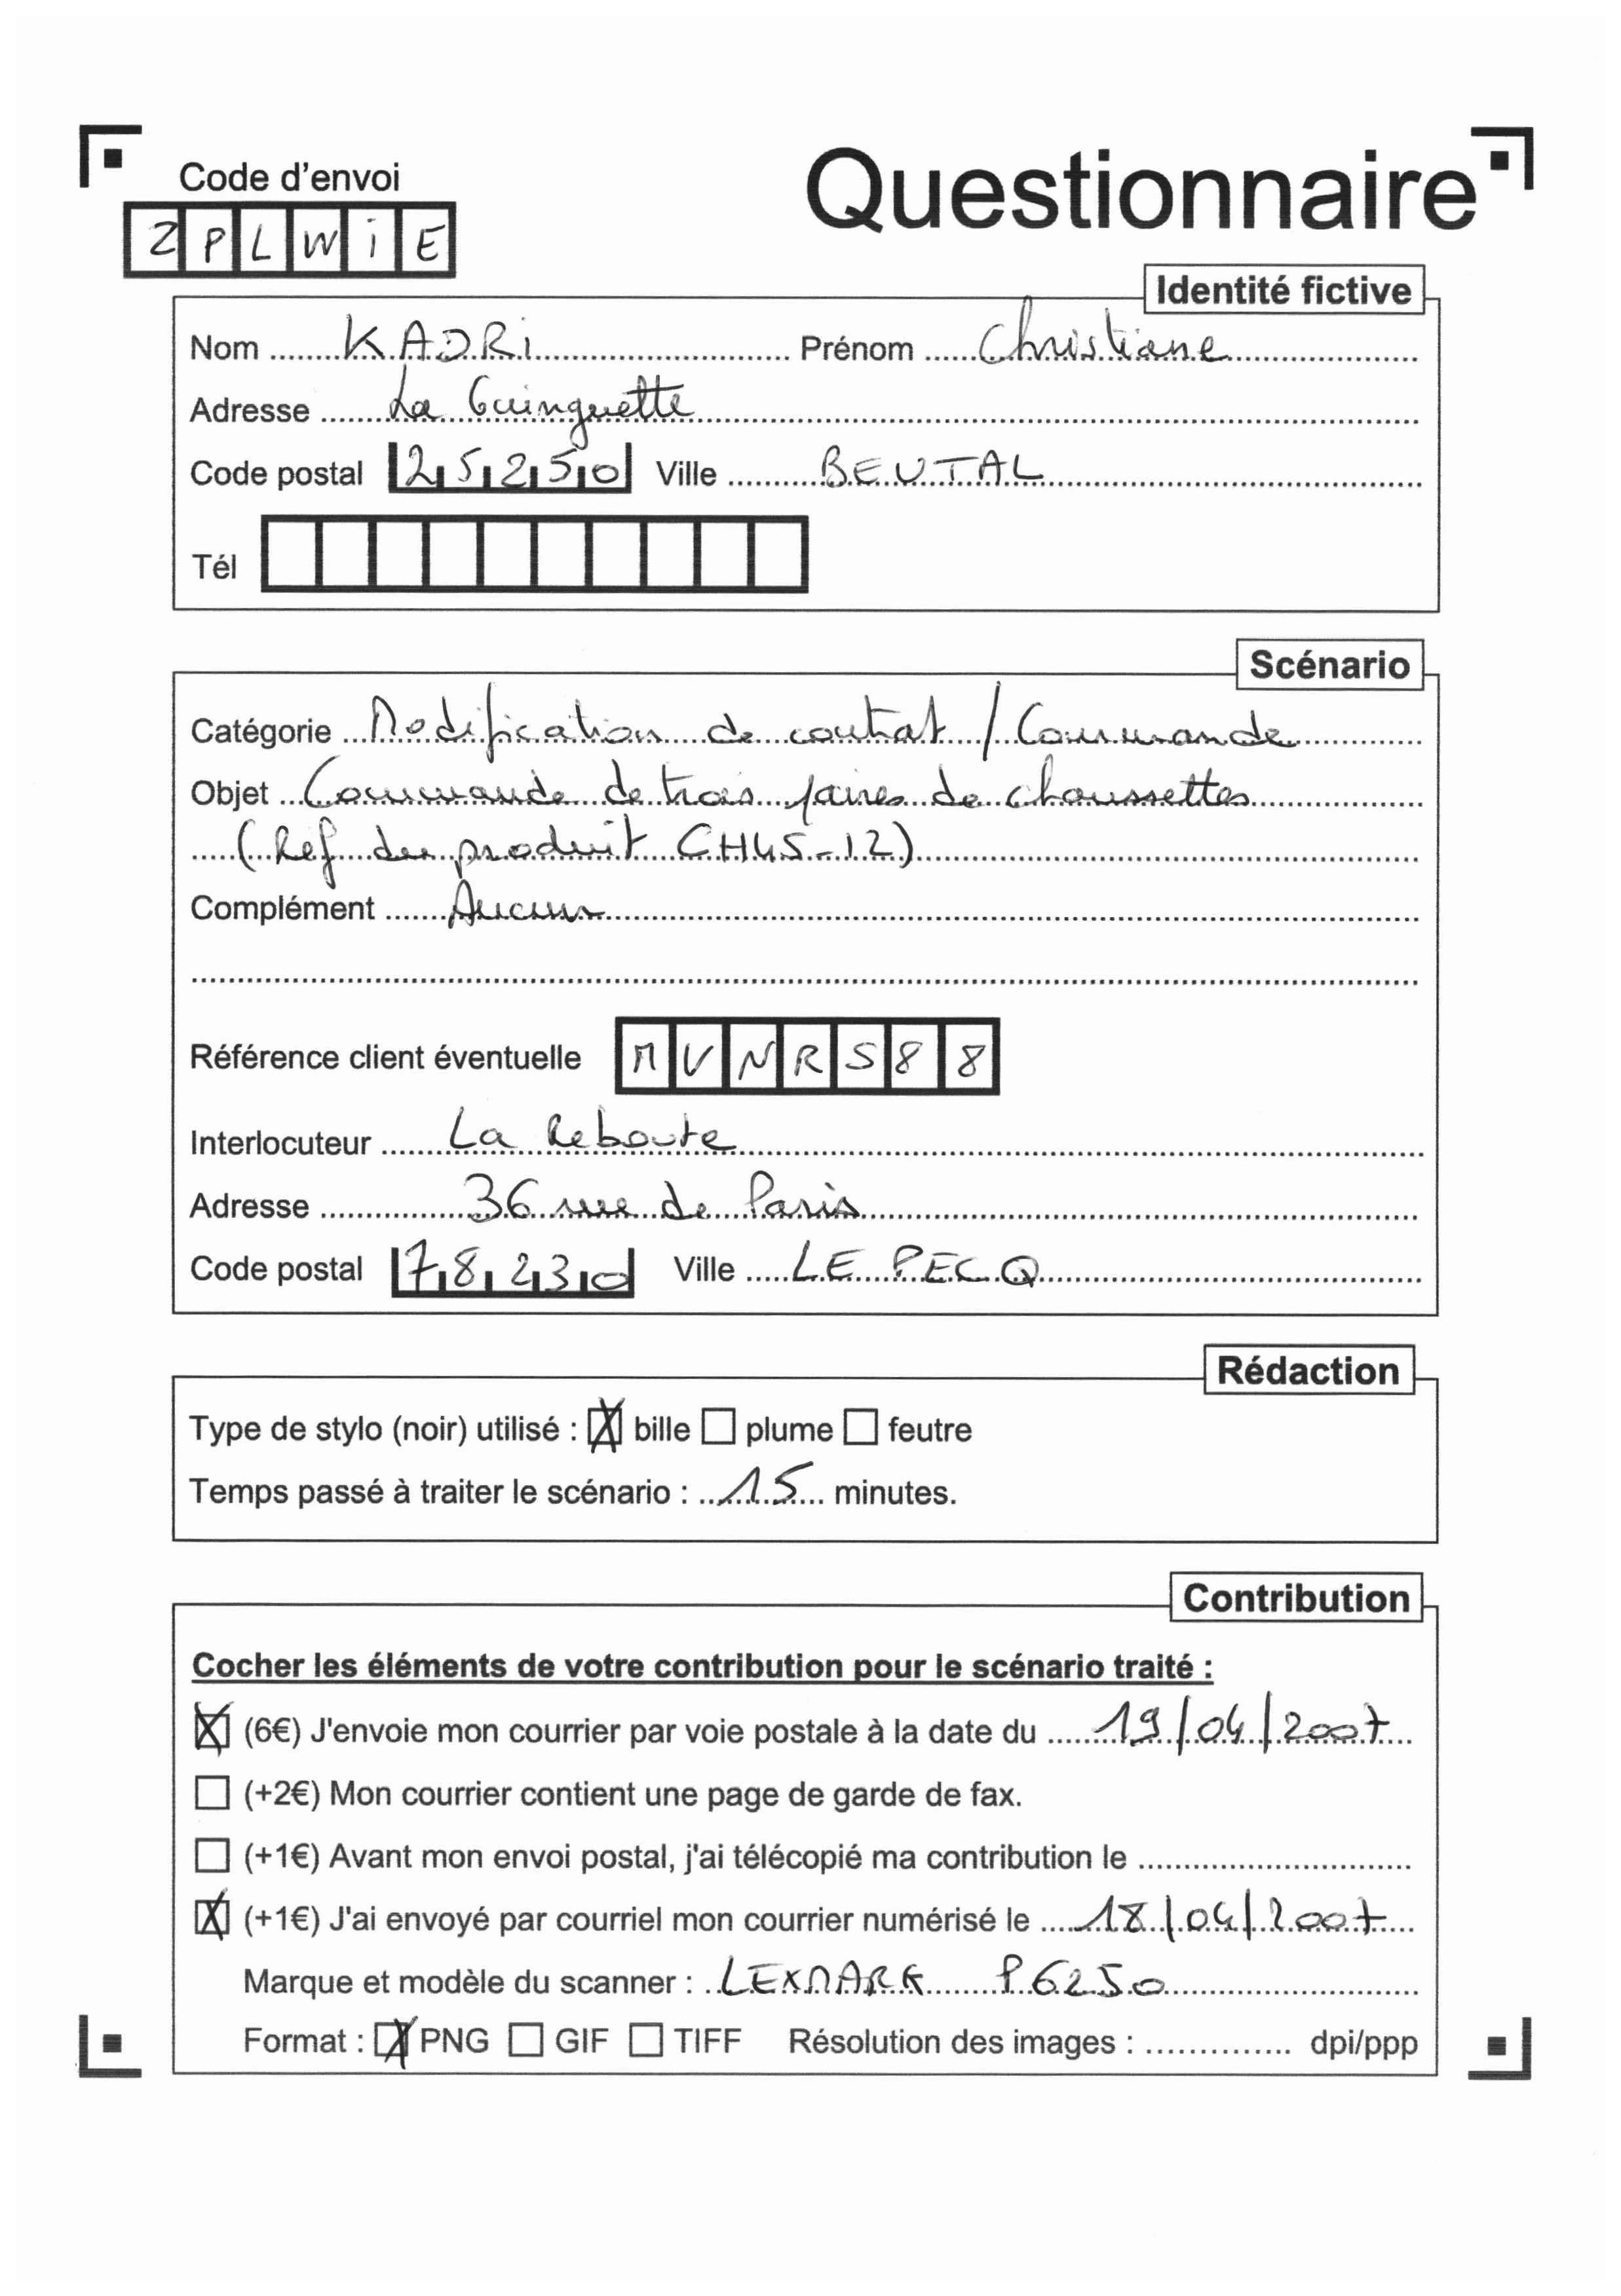 Code d'envoi
Questionnaire
Z P L W i E
Identité fictive
Nom KADRi Prénom Christiane
Adresse La Guinguette
Code postal 25250 Ville BEUTAL
Tél
Scénario
Catégorie Modification de contrat / Commande
Objet Commande de trois paires de chaussettes
(Ref du produit CH45-12)
Complément Aucun
Référence client éventuelle M V N R S 8 8
Interlocuteur La Reboute
Adresse 36 rue de Paris
Code postal 78230 Ville LE PECQ
Rédaction
Type de stylo (noir) utilisé : bille plume feutre
Temps passé à traiter le scénario : 15 minutes.
Contribution
Cocher les éléments de votre contribution pour le scénario traité :
(6€) J'envoie mon courrier par voie postale à la date du 19/04/2007
(+2€) Mon courrier contient une page de garde de fax.
(+1€) Avant mon envoi postal, j'ai télécopié ma contribution le
(+1€) J'ai envoyé par courriel mon courrier numérisé le 18/04/2007
Marque et modèle du scanner : LEXMARK P6250
Format : PNG GIF TIFF Résolution des images : dpi/ppp